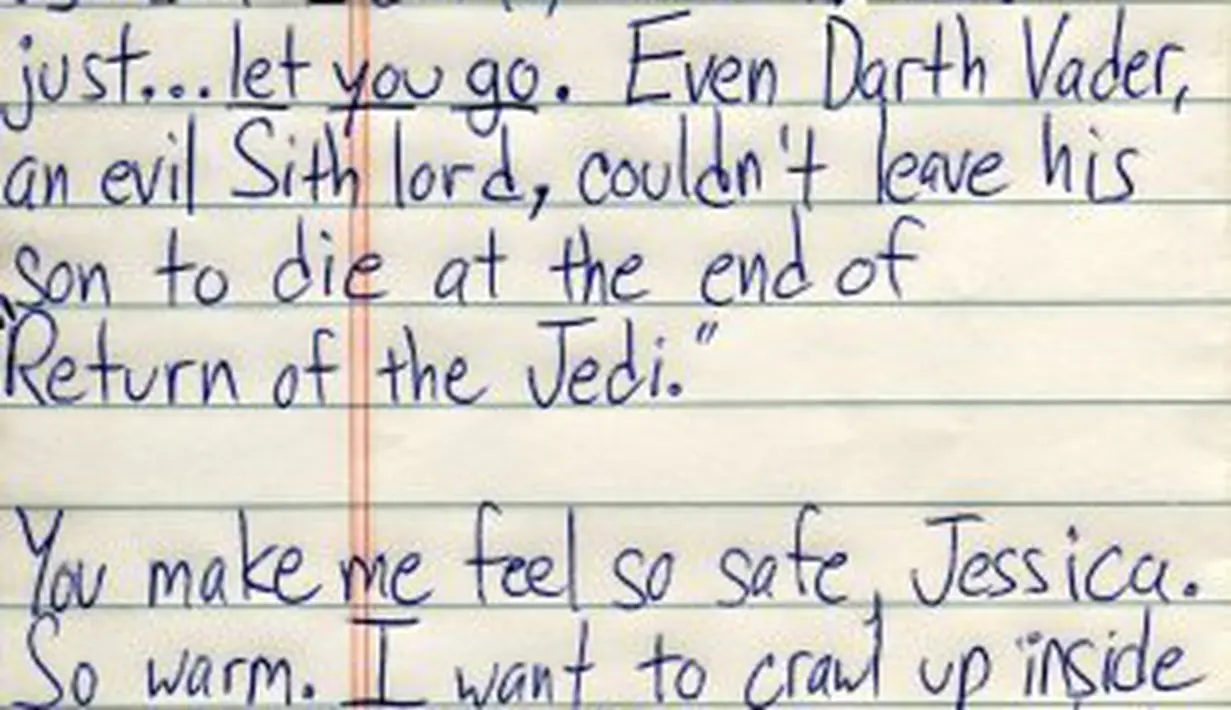 just... let you go. Even Darth Vader,
an evil Sith lord, couldn't leave his
son to die at the end of
"Return of the Jedi."
You make me feel so safe, Jessica.
So warm. I want to crawl up inside